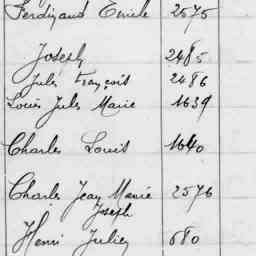 Ferdinand Emile 2575
Joseph 2485
Jules François 2486
Louis Jules Marie 1639
Charles Louis 1640
Charles Jean Marie 2576
Joseph
Henri Julien 680